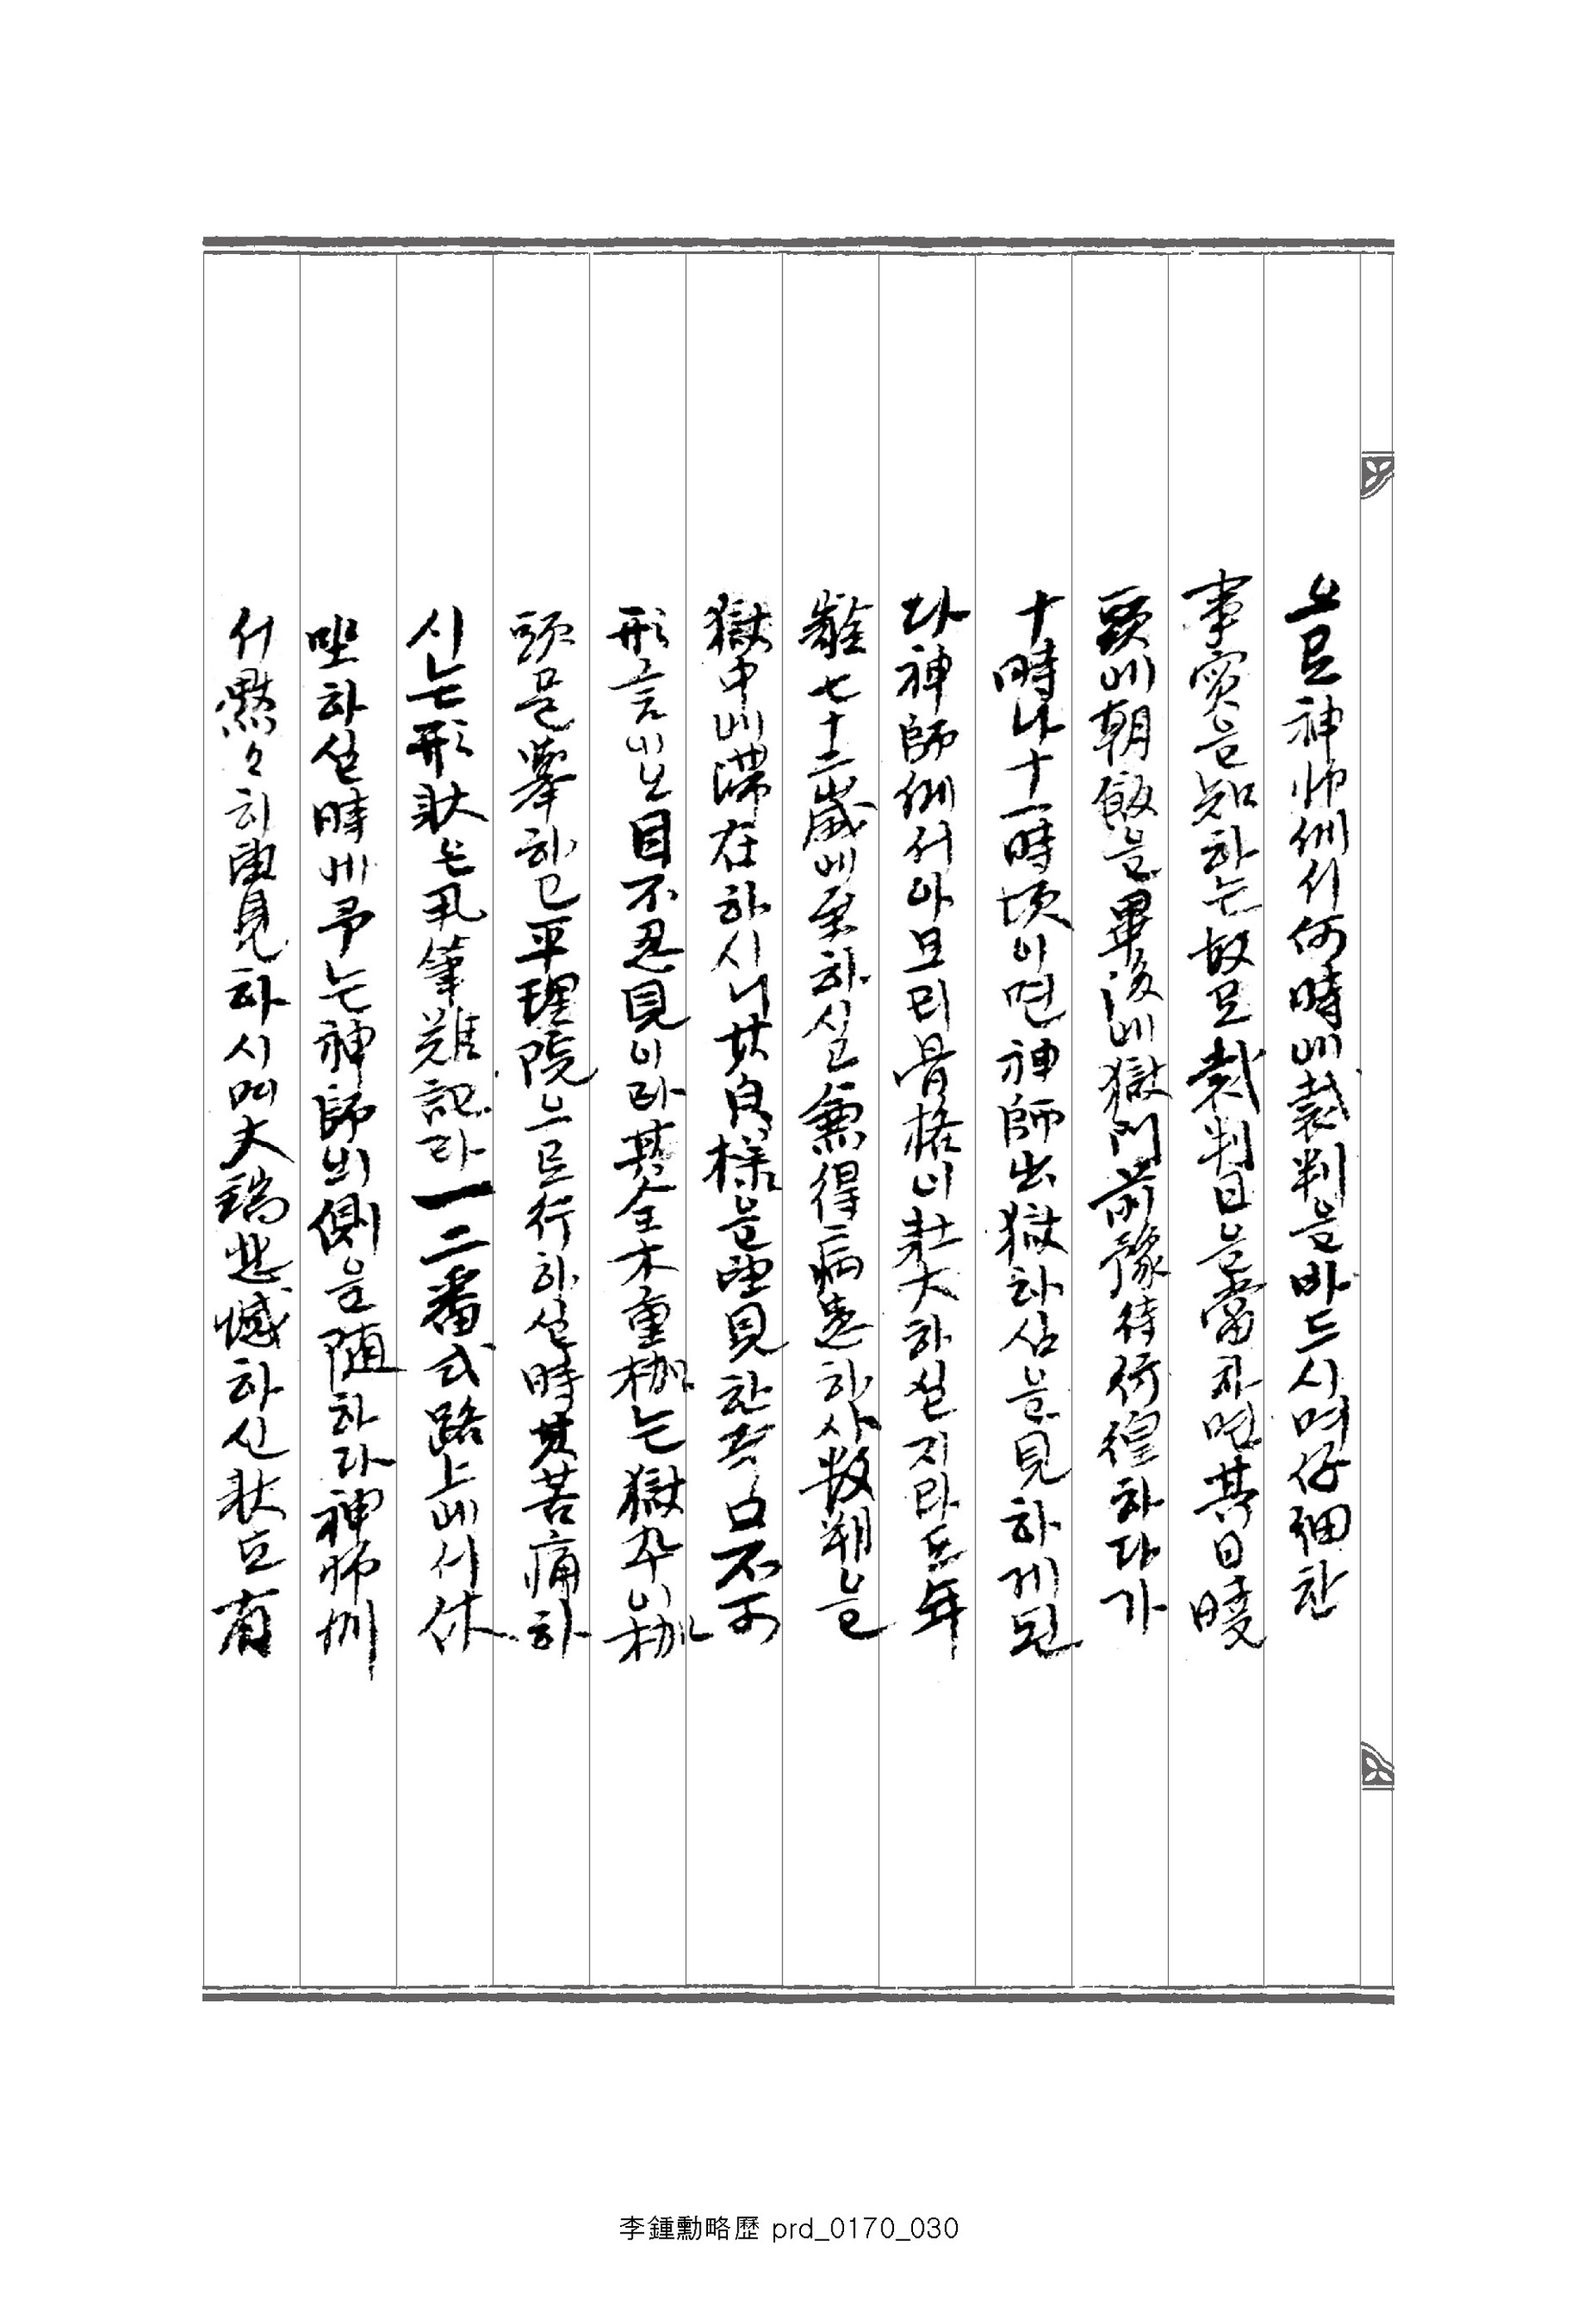 으로神師게서何時에裁判을바드시며仔細한
事實을知하는故로裁判日을當하면其日曉
頭에朝飯을畢後에獄門前豫待彷徨하다가
十時나十一時頃이면神師出獄하심을見하게된
다神師게서아모리骨格이壯大하실지라도年
齡七十二歲에至하실兼得病患하사數朔을
獄中에滯在하시니其良樣을望見한則口不可
形言이오目不忍見이라其全木重枷는獄卒이枷
頭를擧하고平理院으로行하실時其苦痛하
시는形狀은孔筆難記라一二番式路上에서休
坐하실時에予는神師의側을隨하라神師게
서黙々히直見하시며大端悲憾하신狀으로有
李鍾勳略歷 prd_0170_030